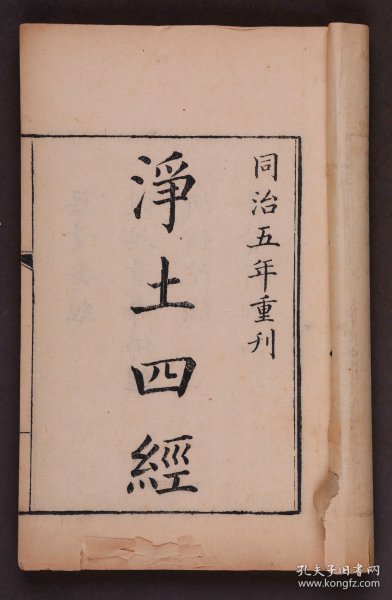 同治五年重刊
淨土四經
孔夫子旧书网
www.kongfz.com